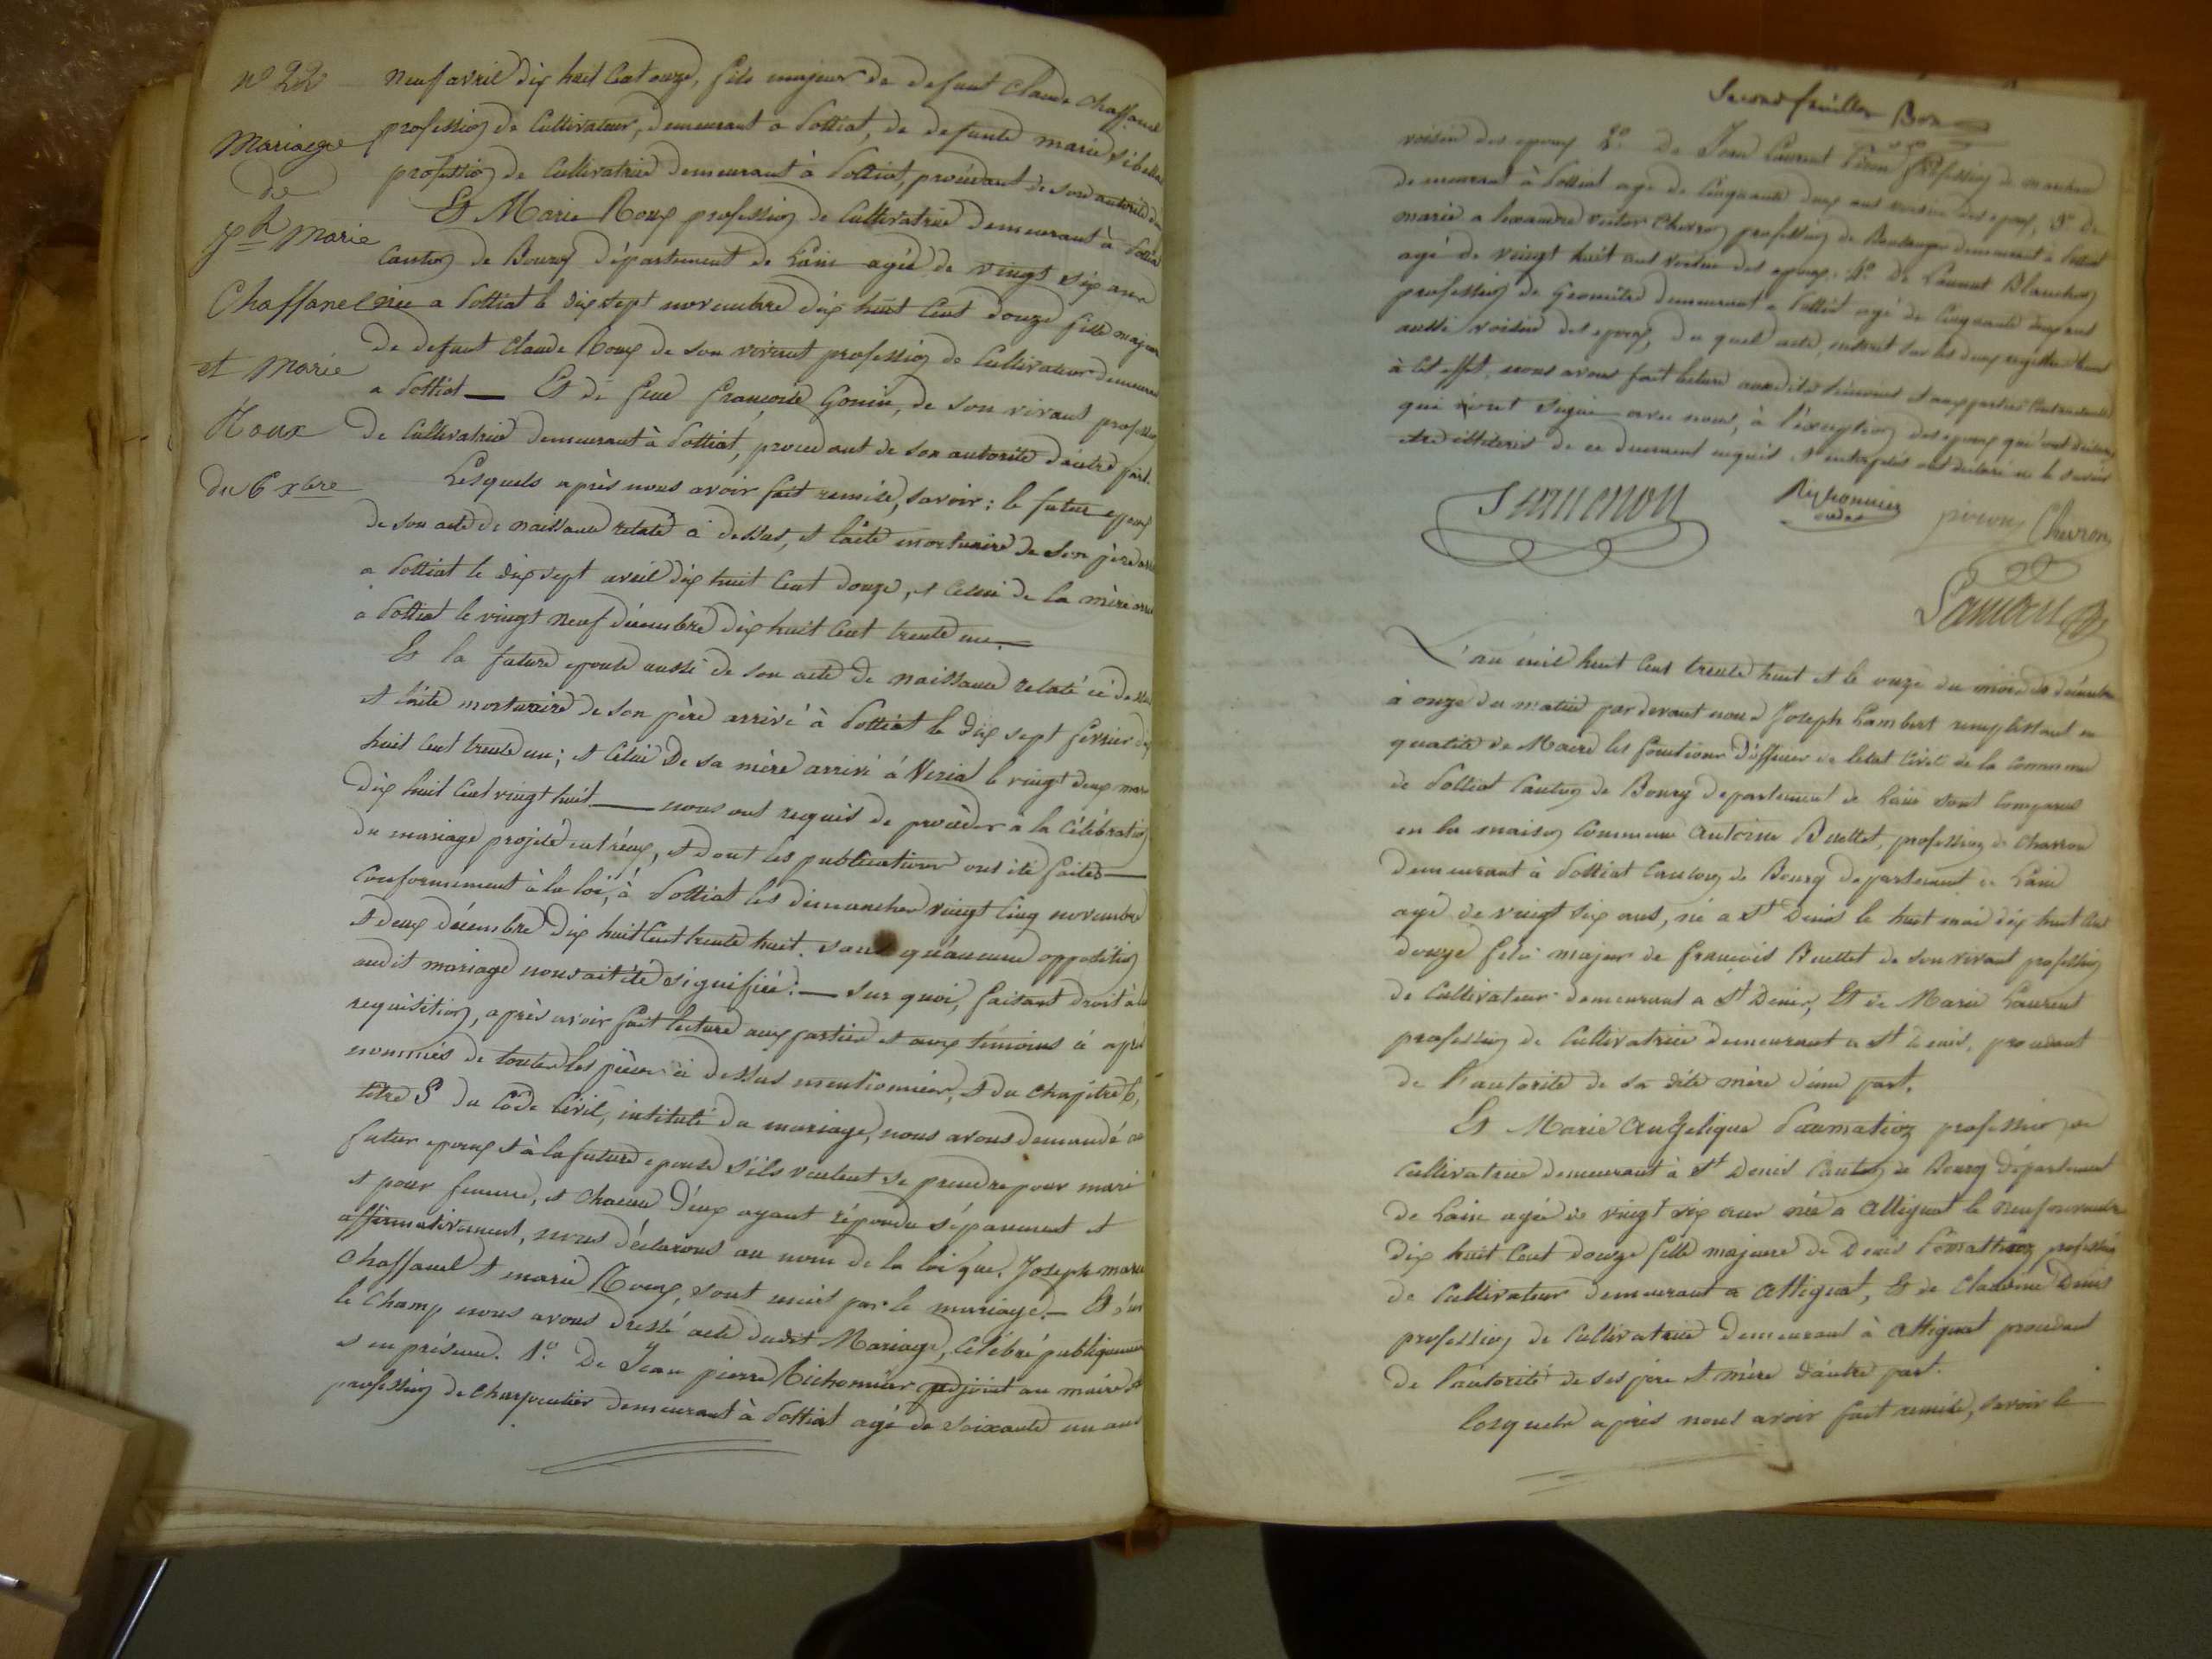 nº 22
Mariage
de
Jph Marie
Chaffanel
et Marie
Roux
du 6 xbre
neuf avril dix huit Cent onze, fils majeur de defunt Claude Chaffanel
profession de Cultivateur, demeurant a Polliat, de defunte marie Sibellas
profession de Cultivatrice demeurant à Polliat, procédant de son autorité d'une
Et Marie Roux profession de Cultivatrice demeurant à Polliat
Canton de Bourg département de L'ain agée de vingt six ans
née a Polliat le dix sept novembre dix huit Cent douze fille majeure
de defunt Claude Roux de son vivant profession de Cultivateur demeurant
a Polliat — Et de feue francoise Gonin, de son vivant profession
de Cultivatrice demeurant à Polliat, procedant de son autorité d'autre part.
Lesquels après nous avoir fait remise, savoir : le futur epoux
de son acte de naissance relaté ci dessus, et l'acte mortuaire de son père arrivé
a Polliat le dix sept avril dix huit Cent douze, et Celui de la mère arrivé
a Polliat le vingt neuf décembre dix huit Cent trente un. —
Et la future epouse aussi de son acte de naissance relaté ci dessus
et l'acte mortuaire de son père arrivé à Polliat le dix sept février dix
huit Cent trente un ; et Celui de sa mère arrivé à Viriat le vingt deux mars
dix huit Cent vingt huit — nous ont requis de procéder a la Célébration
du mariage projeté entr'eux, et dont les publications ont été faites —
Conformément à la loi, à Polliat les dimanches vingt Cinq novembre
et deux décembre dix huit Cent trente huit. sans qu'aucune opposition
audit mariage nous ait été signifiée. — sur quoi, faisant droit à la
requisition, après avoir fait lecture aux parties et aux témoins ci après
nommés de toutes les pièces ci dessus mentionnées, et du Chapitre 6,
titre 5 du Code Civil, intitulé du mariage, nous avons demandé au
futur epoux et à la future epouse s'ils veulent se prendre pour mari
et pour femme, et chacun d'eux ayant répondu séparément et
affirmativement, nous déclarons au nom de la loi que, Joseph marie
Chaffanel et marie Roux, sont unis par le mariage. — Et sur
le champ nous avons dressé acte dudit Mariage, Célébré publiquement
et en présence. 1º. De Jean pierre Richonnier adjoint au maire et
profession de charpentier demeurant à Polliat agé de soixante un ans
Second feuillet Bon
voisin des epoux 2º de Jean Laurent Piron profession de marchand
demeurant à Polliat agé de Cinquante deux ans voisin des epoux, 3º de
marie alexandre victor Chevron profession de Boulanger demeurant à Polliat
agé de vingt huit ans voisin des epoux. 4º. de Laurent Blanchon
profession de Geomètre demeurant a Polliat agé de Cinquante deux ans
aussi voisin des epoux, du quel acte, inscrit sur les deux registres tenus
à Cet effet, nous avons fait lecture auxdits témoins et aux parties Contractantes
qui ont signé avec nous, à l'exception des epoux qui ont déclaré
etre illitérés de ce duement enquis et interpelés ont declaré ne le savoir
Richonnier
piron Chevron
Lambert
L'an mil huit Cent trente huit et le onze du mois de décembre
à onze du matin par devant nous Joseph Lambert remplissant en
qualité de Maire les fonctions d'officier de letat Civil de la Commune
de Polliat Canton de Bourg departement de Lain sont Comparus
en la maison Commune Antoine Buellet, profession de charron
demeurant à Polliat Canton de Bourg departement de Lain
agé de vingt six ans, né a St Denis le huit mai dix huit Cent
douze fils majeur de francois Buellet de son vivant profession
de Cultivateur demeurant a St Denis, Et de Marie Laurent
profession de Cultivatrice demeurant a St Denis, procedant
de l'autorité de sa dite mère d'une part.
Et Marie Angelique Paumation profession de
Cultivatrice demeurant à St Denis Canton de Bourg département
de Lain agée de vingt six ans née a Attignat le neuf novembre
dix huit Cent douze fille majeure de Denis profession
de Cultivateur demeurant a Attignat, Et de Claudine Denis
profession de Cultivatrice demeurant à Attignat procedant
de l'autorité de ses père et mère d'autre part.
Lesquels après nous avoir fait remise, savoir le